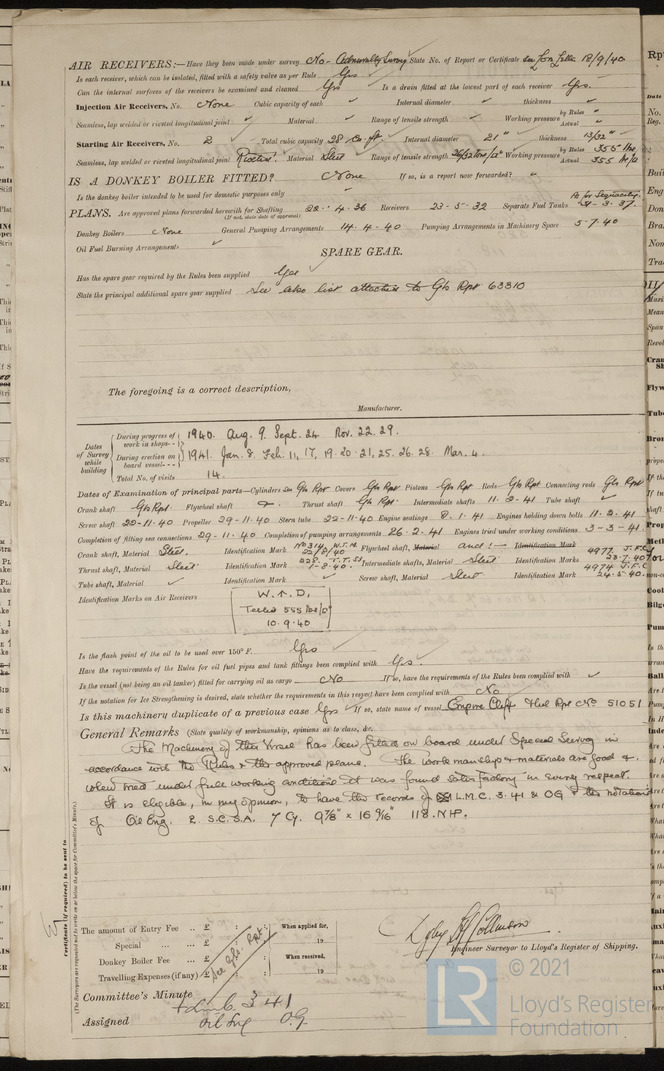 AIR RECEIVERS:—Have they been made under survey No - Admiralty Survey State No. of Report or Certificate see Lon Letter 18/9/40
Is each receiver, which can be isolated, fitted with a safety valve as per Rule Yes
Can the internal surfaces of the receivers be examined and cleaned Yes Is a drain fitted at the lowest part of each receiver Yes.
Injection Air Receivers, No. None Cubic capacity of each Internal diameter thickness
Seamless, lap welded or riveted longitudinal joint Material Range of tensile strength Working pressure by Rules Actual
Starting Air Receivers, No. 2 Total cubic capacity 28 Co. ft. Internal diameter 21" thickness 13/32"
Seamless, lap welded or riveted longitudinal joint Riveted. Material Steel Range of tensile strength Working pressure by Rules 355 Actual 355
IS A DONKEY BOILER FITTED? None If so, is a report now forwarded?
Is the donkey boiler intended to be used for domestic purposes only
PLANS. Are approved plans forwarded herewith for Shafting 22.4.36 Receivers 23-5-32 Separate Fuel Tanks 31-3-37.
(If not, state date of approval)
Donkey Boilers None General Pumping Arrangements 14.4.40 Pumping Arrangements in Machinery Space 5-7-40
Oil Fuel Burning Arrangements
SPARE GEAR.
Has the spare gear required by the Rules been supplied Yes
State the principal additional spare gear supplied See also list attached to Gls Rpt 63310
The foregoing is a correct description,
Manufacturer.
Dates of Survey while building
During progress of work in shops-- 1940. Aug. 9. Sept. 24 Nov. 22. 29.
During erection on board vessel--- 1941. Jan. 8. Feb. 11, 17, 19. 20. 21, 25. 26. 28. Mar. 4.
Total No. of visits 14.
Dates of Examination of principal parts—Cylinders see Gls Rpt Covers Gls Rpt Pistons Gls Rpt Rods Gls Rpt Connecting rods Gls Rpt
Crank shaft Gls Rpt. Flywheel shaft Thrust shaft Gls Rpt. Intermediate shafts 11.2.41 Tube shaft
Screw shaft 20-11-40 Propeller 29-11-40 Stern tube 22-11-40 Engine seatings 8.1.41 Engines holding down bolts 11.2.41
Completion of fitting sea connections 29-11-40 Completion of pumping arrangements 26.2.41 Engines tried under working conditions 3-3-41
Crank shaft, Material Steel. Identification Mark Flywheel shaft, Material and Identification Mark 4977 J.F.C
Thrust shaft, Material Steel Identification Mark 1-8-40. Intermediate shafts, Material Steel Identification Marks 4974 J.F.C
Tube shaft, Material Identification Mark Screw shaft, Material Steel Identification Mark 24.5.40
Identification Marks on Air Receivers
W.↑D,
Tested 555 lbs/□"
10.9.40
Is the flash point of the oil to be used over 150° F. Yes
Have the requirements of the Rules for oil fuel pipes and tank fittings been complied with Yes.
Is the vessel (not being an oil tanker) fitted for carrying oil as cargo No If so, have the requirements of the Rules been complied with
If the notation for Ice Strengthening is desired, state whether the requirements in this respect have been complied with No
Is this machinery duplicate of a previous case Yes If so, state name of vessel Empire Cliff Hul Rpt No 51051
General Remarks (State quality of workmanship, opinions as to class, &c.
The Machinery of this Vessel has been fitted on board under Special Survey in
accordance with the Rules & the approved plans. The workmanship & materials are good &
when tried under full working conditions it was found satisfactory in every respect.
It is eligible, in my opinion, to have the records of L.M.C. 3.41 & OG & the notation
of Oil Eng. 2. S.C.S.A. 7 Cy. 9⅞" x 16 9/16" 118.NHP.
Certificate (if required) to be sent to
(The Surveyors are requested not to write on or below the space for Committee's Minute.)
The amount of Entry Fee .. £ : : When applied for,
Special ... £ : 19
Donkey Boiler Fee ... £ : : When received,
Travelling Expenses (if any) £ : : 19
See Gls. Rpt.
Engineer Surveyor to Lloyd's Register of Shipping.
Committee's Minute + LMC 3 41
Assigned Oil Eng O.G.
LR
© 2021
Lloyd's Register
Foundation